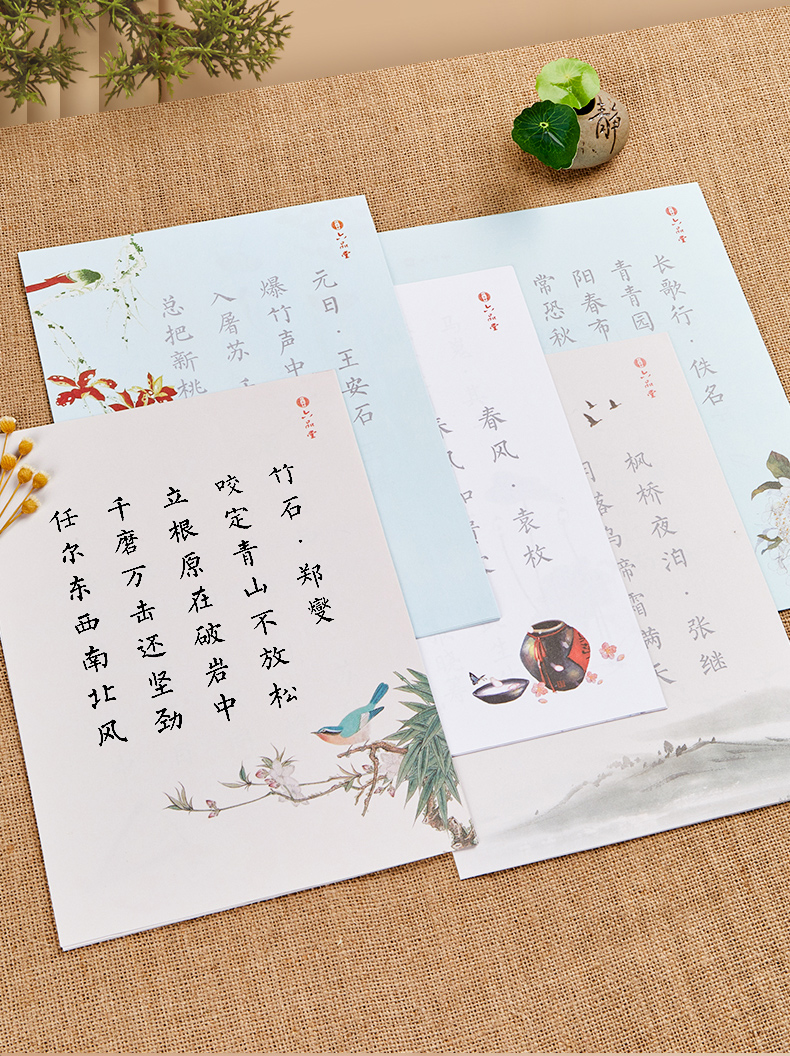 靜
六品堂
元日·王安石
爆竹声中
入屠苏
总把新桃
六品堂
长歌行·佚名
青青园
阳春布
常恐秋
六品堂
春风·袁枚
六品堂
枫桥夜泊·张继
月落乌啼霜满天
六品堂
竹石·郑燮
咬定青山不放松
立根原在破岩中
千磨万击还坚劲
任尔东西南北风